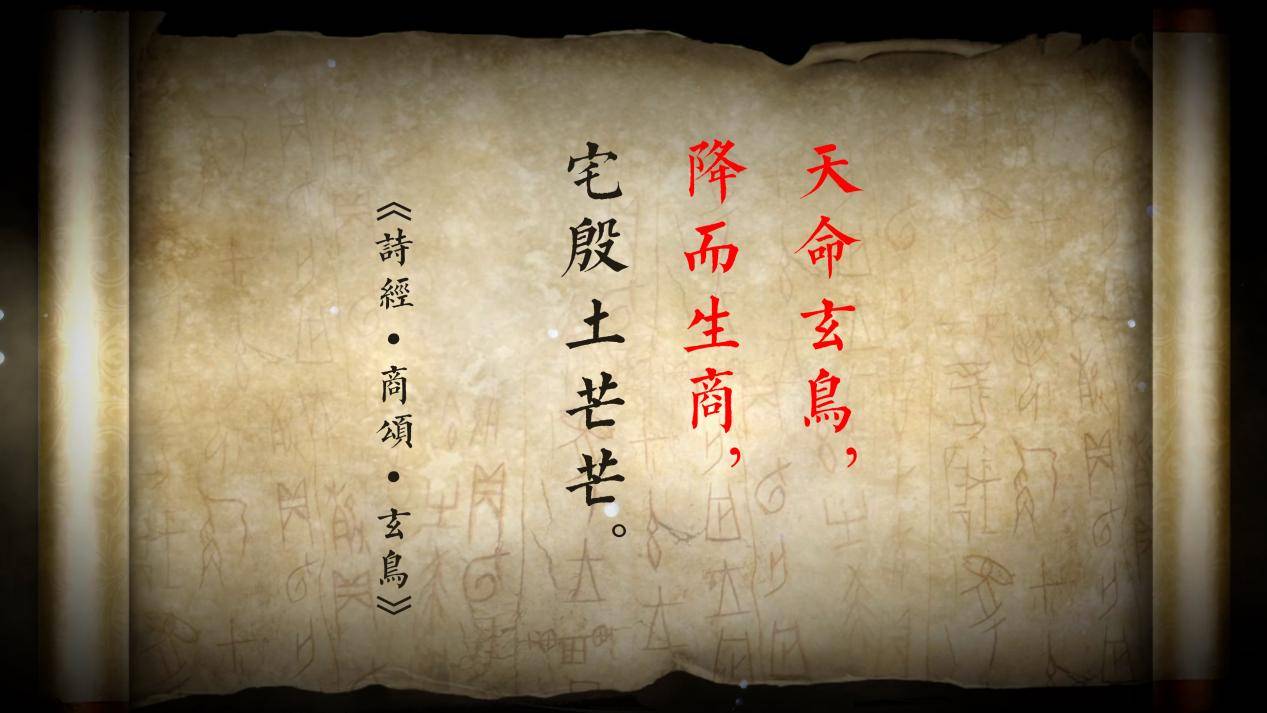 天命玄鳥，
降而生商，
宅殷土芒芒。
《詩經•商頌•玄鳥》